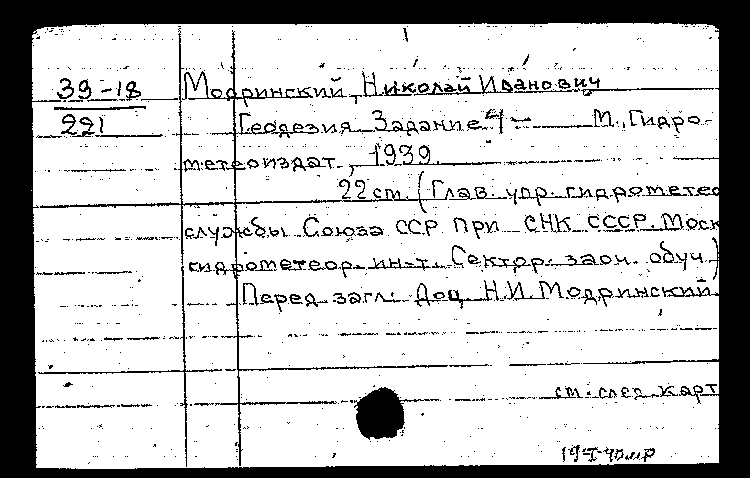 39-18
221
Модринский, Николай Иванович
Геодезия Задание 4 — М., Гидро-
метеоиздат, 1939.
22 cm. (Глав. упр. гидрометео
службы Союза ССР при СНК СССР. Моск
гидрометеор. ин-т. Сектор. заоч. обуч.)
Перед загл: Доц. Н.И. Модринский.
см. след. карт